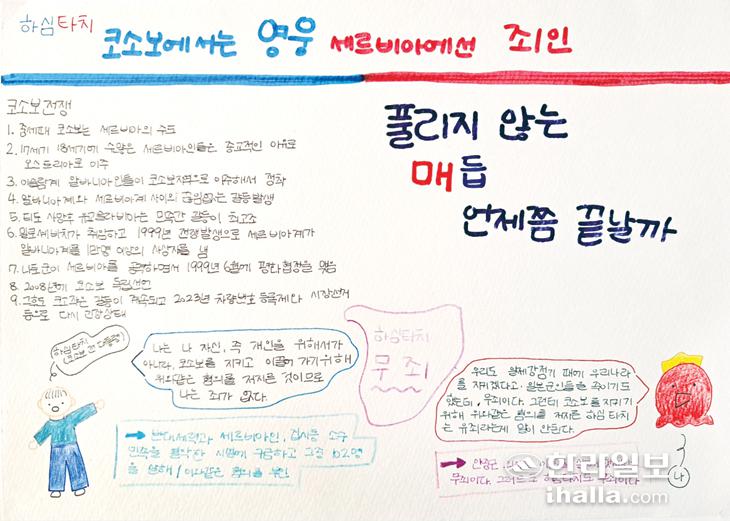 하심타치 코소보에서는 영웅 세르비아에선 죄인
코소보전쟁
1. 중세때 코소보는 세르비아의 수도
2. 17세기 18세기에 수많은 세르비아인들은 종교적인 이유로
오스트리아로 이주
3. 이슬람계 알바니아인들이 코소보지역으로 이주해서 정착
4. 알바니아계와 세르비아계 사이의 끊임없는 갈등발생
5. 티토 사망후 유고슬라비아는 민족간 갈등이 최고조
6. 밀로셰비치가 취임하고 1999년 전쟁발생으로 세르비아계가
알바니아계를 1만명 이상의 사상자를 냄
7. 나토군이 세르비아를 공격하면서 1999년 6월에 평화협정을 맺음
8. 2008년에 코소보 독립선언
9. 그래도 코소보는 갈등이 계속되고 2023년 차량번호 등록제와 시장선거
등으로 다시 긴장상태
풀리지 않는
매듭
언제쯤 끝날까
하심타치
(코소보 전 대통령)
나는 나 자신, 즉 개인을 위해서가
아니라, 코소보를 지키고 이끌어 가기위해
위와같은 혐의를 저지른 것이므로
나는 죄가 없다.
→ 반대세력과 세르비아인, 집시등 소수
민족을 불법 시설에 구금하고 그중 102명
을 살해/이와같은 혐의를 부인
하심타치
무죄
우리도 일제강점기 때에 우리나라
를 지키겠다고 일본군인들을 죽이기도
했는데, 무죄이다. 그런데 코소보를 지키기
위해 위와같은 혐의를 저지른 하심 타치
는 유죄라는게 말이 안된다.
나
→ 안중근
무죄이다. 그러므로 하심타치도 무죄이다
한라일보
ihalla.com